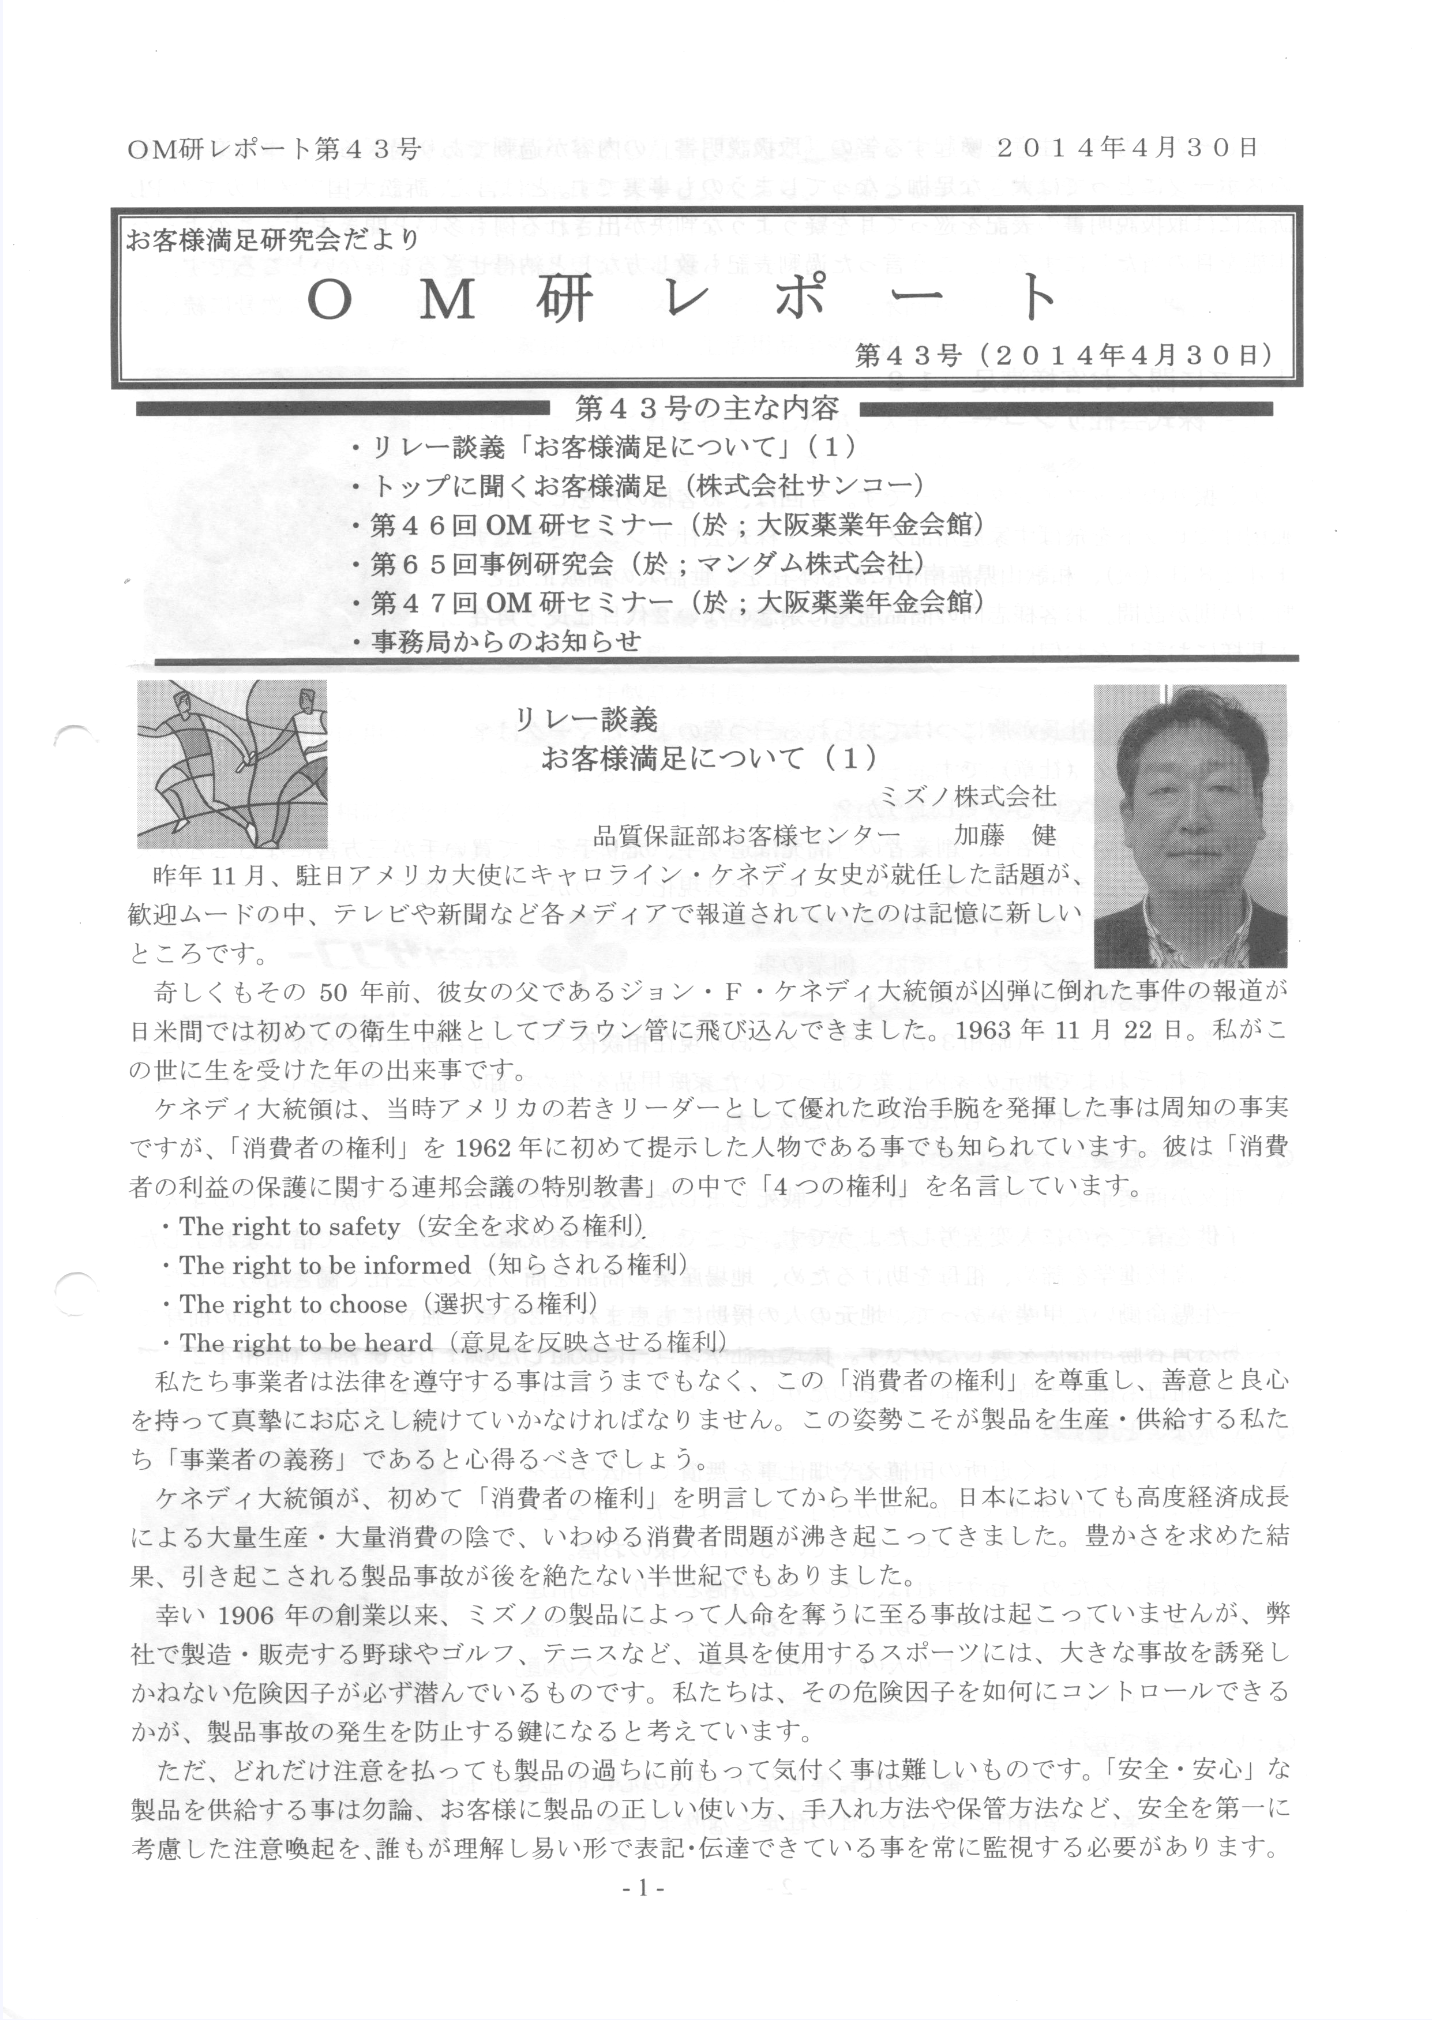 OM研レポート第４３号
２０１４年４月３０日
お客様満足研究会だより
ＯＭ研レポート
第４３号（２０１４年４月３０日）
第４３号の主な内容
・リレー談義「お客様満足について」（１）
・トップに聞くお客様満足（株式会社サンコー）
・第４６回 OM 研セミナー（於；大阪薬業年金会館）
・第６５回事例研究会（於；マンダム株式会社）
・第４７回 OM 研セミナー（於；大阪薬業年金会館）
・事務局からのお知らせ
リレー談義
お客様満足について（１）
ミズノ株式会社
品質保証部お客様センター　加藤　健
昨年 11 月、駐日アメリカ大使にキャロライン・ケネディ女史が就任した話題が、
歓迎ムードの中、テレビや新聞など各メディアで報道されていたのは記憶に新しい
ところです。
奇しくもその 50 年前、彼女の父であるジョン・Ｆ・ケネディ大統領が凶弾に倒れた事件の報道が
日米間では初めての衛生中継としてブラウン管に飛び込んできました。1963 年 11 月 22 日。私がこ
の世に生を受けた年の出来事です。
ケネディ大統領は、当時アメリカの若きリーダーとして優れた政治手腕を発揮した事は周知の事実
ですが、「消費者の権利」を 1962 年に初めて提示した人物である事でも知られています。彼は「消費
者の利益の保護に関する連邦会議の特別教書」の中で「4 つの権利」を名言しています。
・The right to safety（安全を求める権利）
・The right to be informed（知らされる権利）
・The right to choose（選択する権利）
・The right to be heard（意見を反映させる権利）
私たち事業者は法律を遵守する事は言うまでもなく、この「消費者の権利」を尊重し、善意と良心
を持って真摯にお応えし続けていかなければなりません。この姿勢こそが製品を生産・供給する私た
ち「事業者の義務」であると心得るべきでしょう。
ケネディ大統領が、初めて「消費者の権利」を明言してから半世紀。日本においても高度経済成長
による大量生産・大量消費の陰で、いわゆる消費者問題が沸き起こってきました。豊かさを求めた結
果、引き起こされる製品事故が後を絶たない半世紀でもありました。
幸い 1906 年の創業以来、ミズノの製品によって人命を奪うに至る事故は起こっていませんが、弊
社で製造・販売する野球やゴルフ、テニスなど、道具を使用するスポーツには、大きな事故を誘発し
かねない危険因子が必ず潜んでいるものです。私たちは、その危険因子を如何にコントロールできる
かが、製品事故の発生を防止する鍵になると考えています。
ただ、どれだけ注意を払っても製品の過ちに前もって気付く事は難しいものです。「安全・安心」な
製品を供給する事は勿論、お客様に製品の正しい使い方、手入れ方法や保管方法など、安全を第一に
考慮した注意喚起を、誰もが理解し易い形で表記・伝達できている事を常に監視する必要があります。
- 1 -